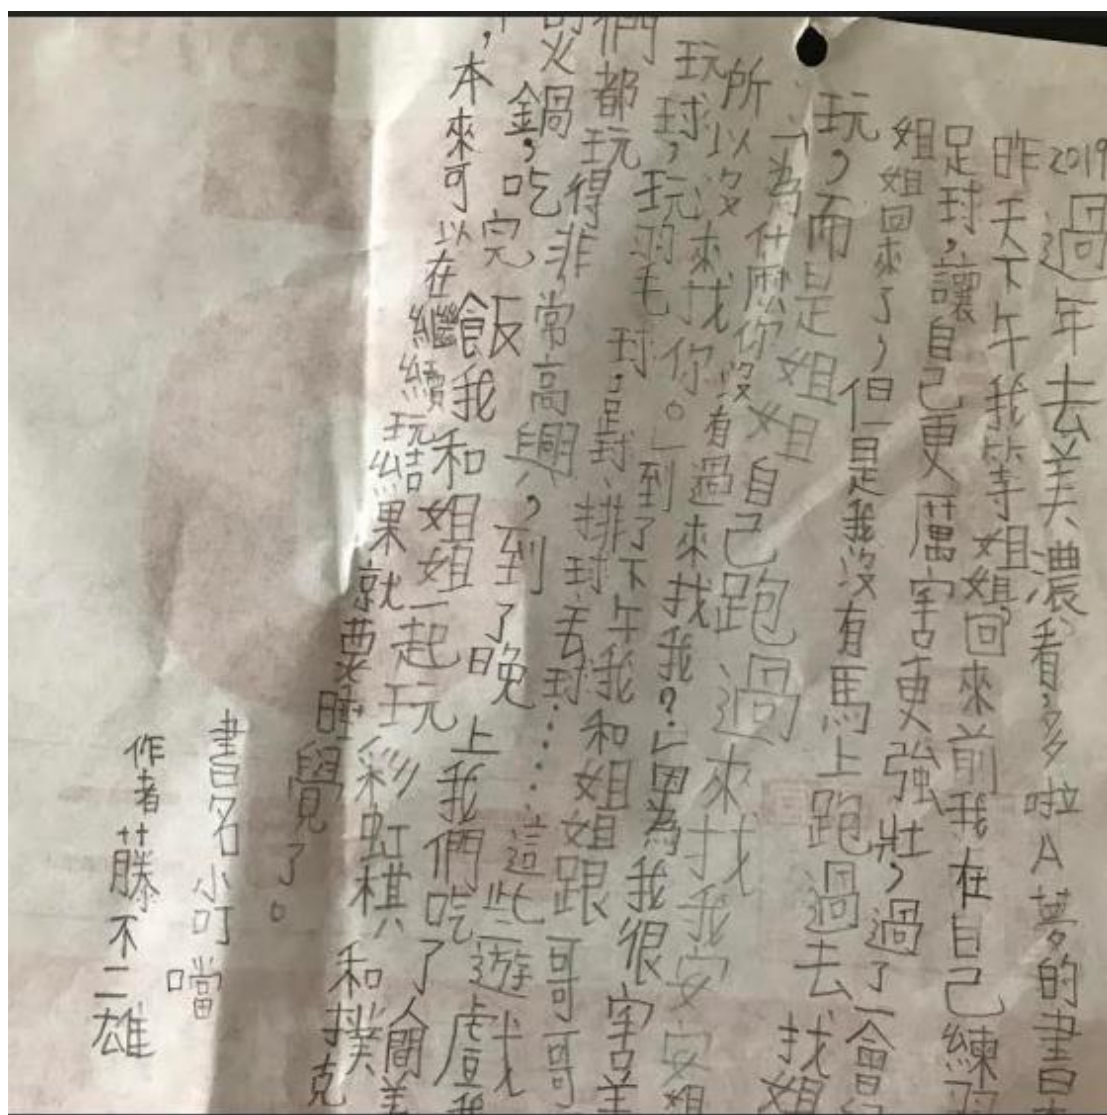 2019過年去美濃看多啦A夢的書
昨天下午我等姐姐回來前我在自己練習
足球,讓自己更厲害更強壯,過了一會
姐姐回來了,但是我沒有馬上跑過去找姐
玩,而是姐姐自己跑過來找我安安姐
「為什麼你沒有過來找我?」因為我很害羞
所以沒來找你。」到了下午我和姐姐跟哥哥
玩球,玩羽毛球、足球、排球、丟球……這些遊戲我
們都玩得非常高興,到了晚上我們吃了
火鍋,吃完飯我和姐姐一起玩彩虹棋和撲克
,本來可以在繼續玩結果就要睡覺了。
書名小叮噹
作者藤不二雄